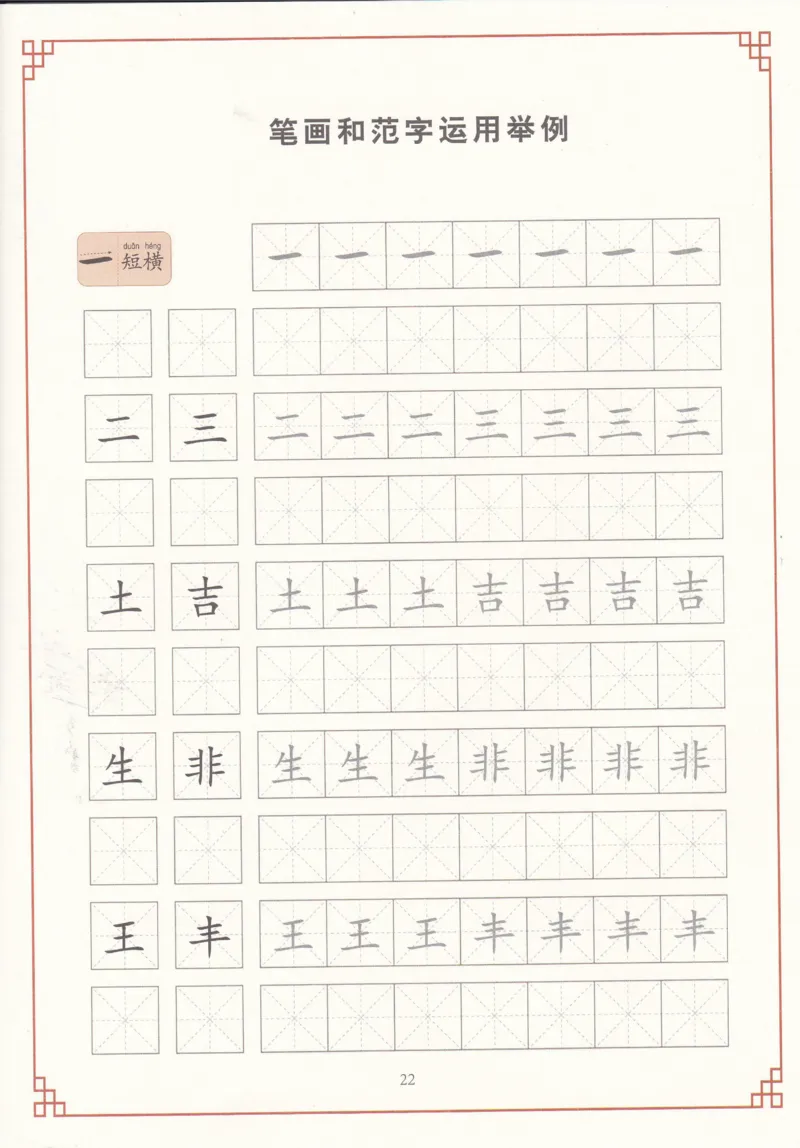 笔画和范字运用举例
duǎn héng
一 短横 一 一 一 一 一 一 一
二 三 二 二 二 三 三 三 三
土 吉 土 土 土 吉 吉 吉 吉
生 非 生 生 生 非 非 非 非
王 丰 王 王 王 丰 丰 丰 丰
22